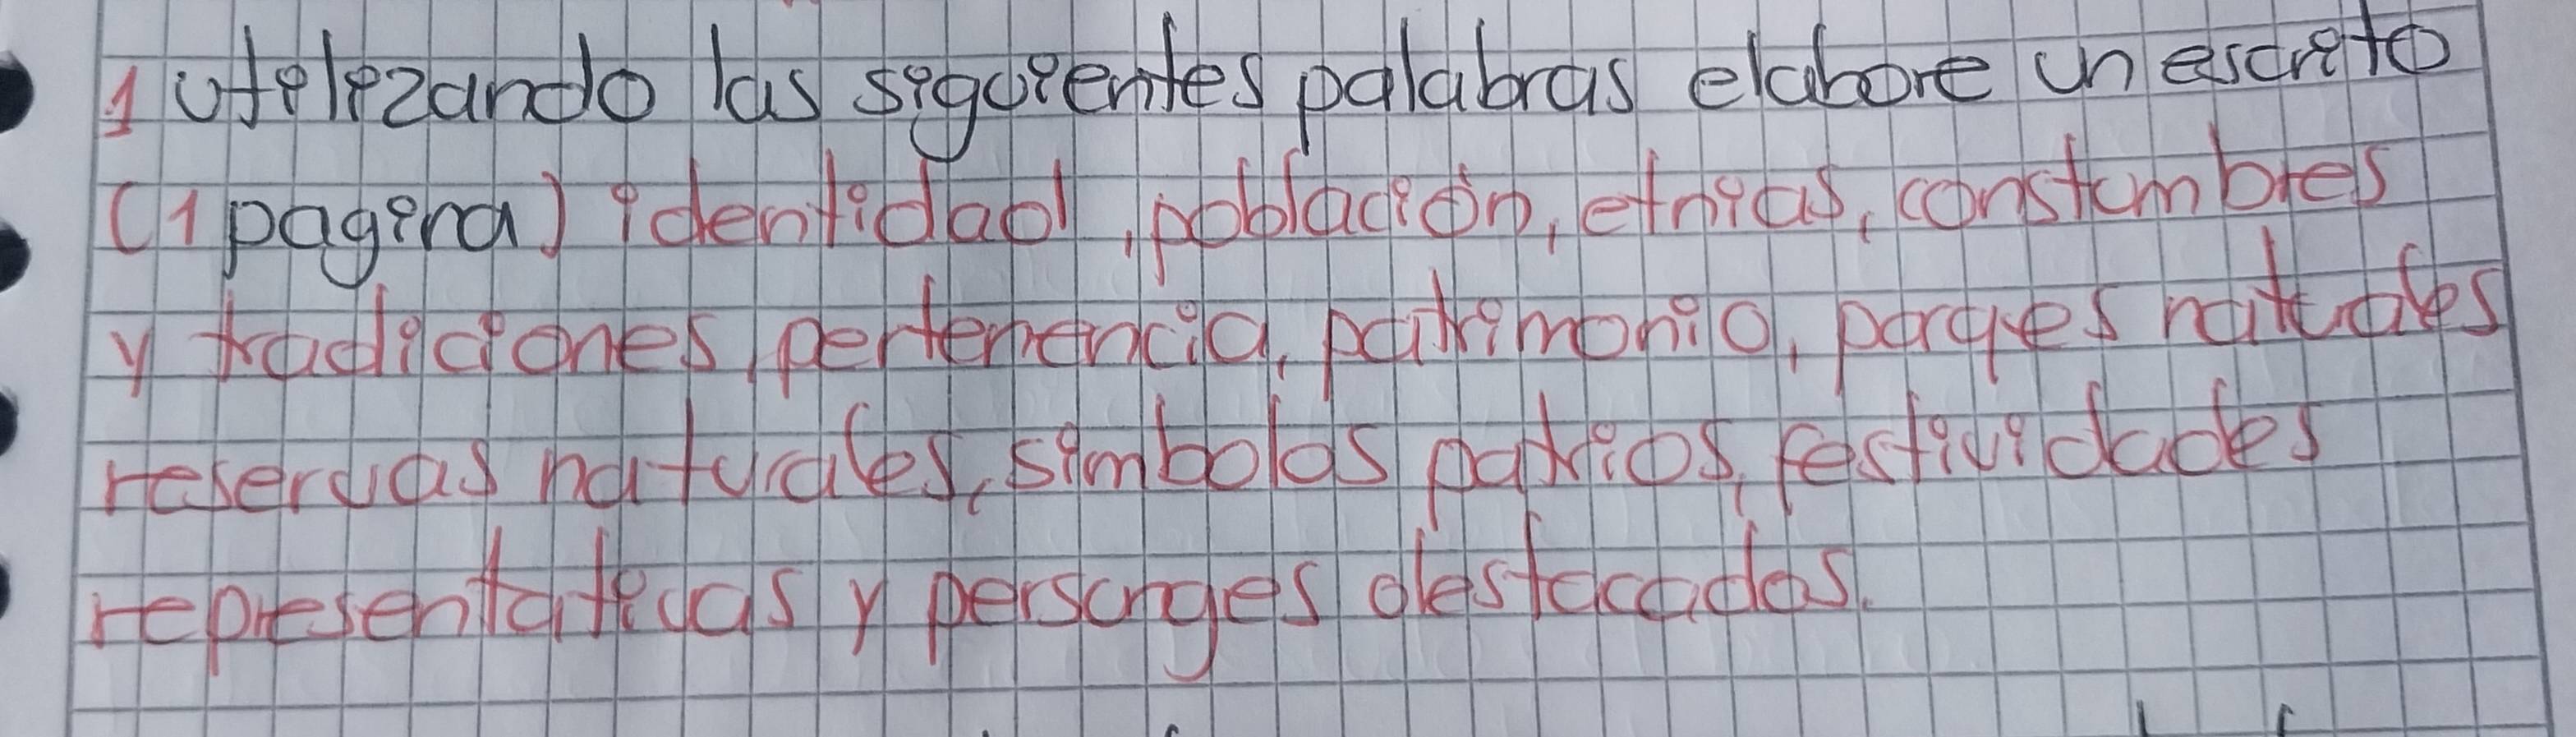 1 utilizando las siguientes palabras elabore un escrito
(1 pagina) identidad, población, etnias, constumbres
y tradiciones, pertenencia, patrimonio, parques naturales
reservas naturales, simbolos patrios, festividades
representativas y personges destacados.